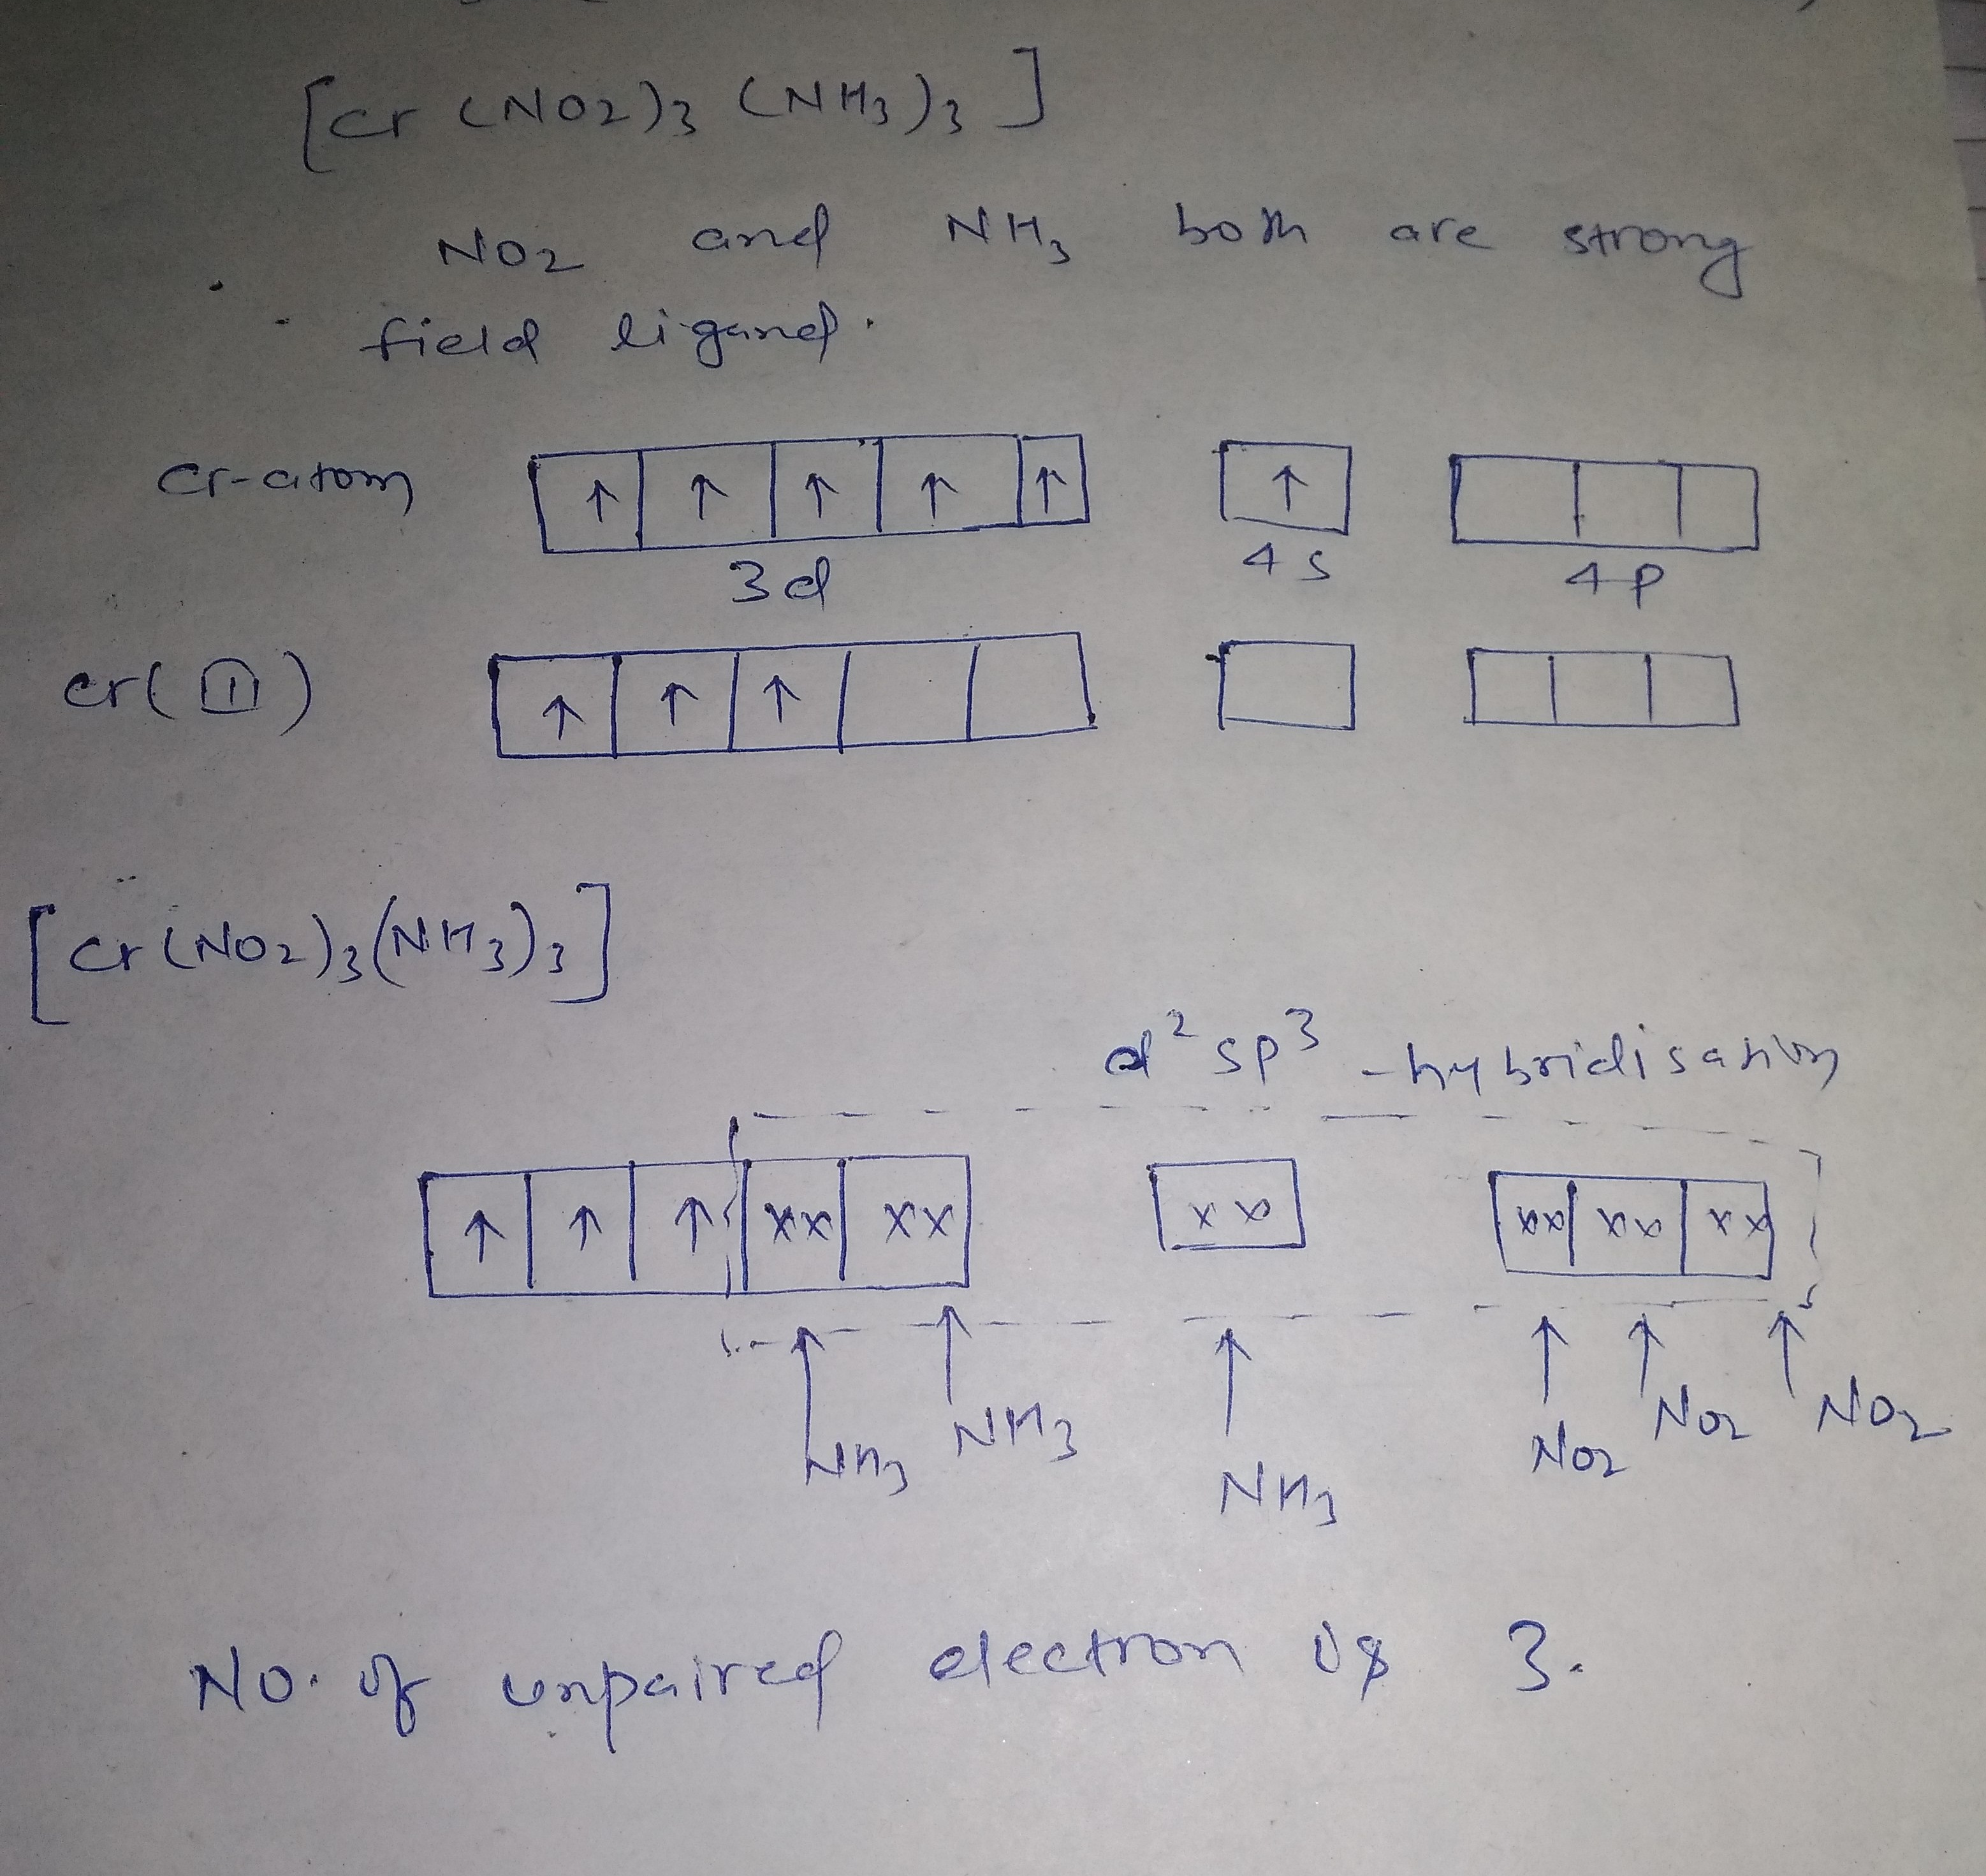 [Cr (NO2)3 (NH3)3]
NO2 and NH3 both are strong
field ligand.
Cr-atom ↑ ↑ ↑ ↑ ↑ ↑
3d 4s 4p
Cr(III) ↑ ↑ ↑
[Cr(NO2)3(NH3)3]
d²sp³ -hybridisation
↑ ↑ ↑ xx xx xx xx xx xx
NH3 NH3 NH3 NO2 NO2 NO2
No. of unpaired electron is 3.